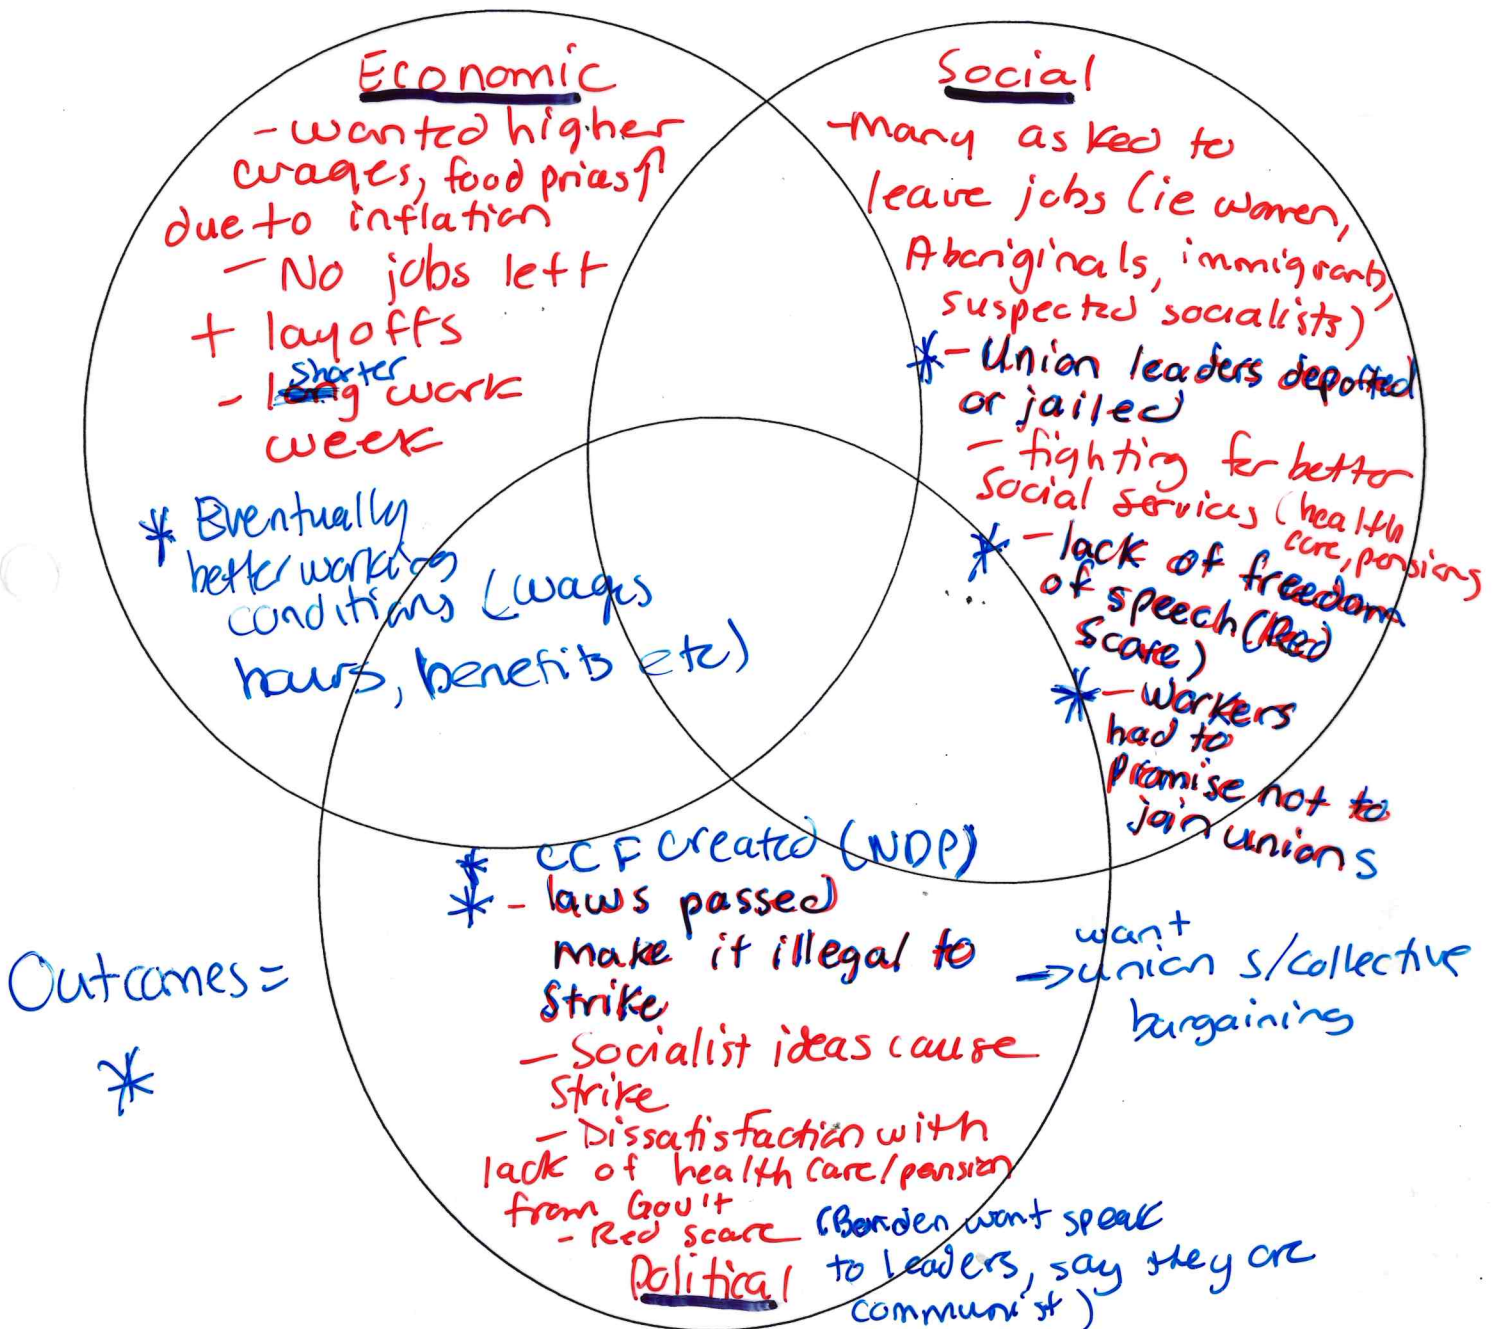 Economic
- wanted higher
wages, food prices ↑
due to inflation
- No jobs left
+ layoffs
shorter
- long work
week
* Eventually
better working
conditions (wages
hours, benefits etc)
Social
- Many asked to
leave jobs (ie women,
Aboriginals, immigrants,
suspected socialists)
* - Union leaders deported
or jailed
- fighting for better
social services (health
care, pensions
* - lack of freedom
of speech (Red
Scare)
* - workers
had to
promise not to
join unions
* CCF created (NDP)
* - laws passed
make it illegal to
strike
- Socialist ideas cause
strike
- Dissatisfaction with
lack of health care/pension
from Gov't
- Red scare (Borden won't speak
to leaders, say they are
communist)
Political
want
→ union s/collective
bargaining
Outcomes =
*